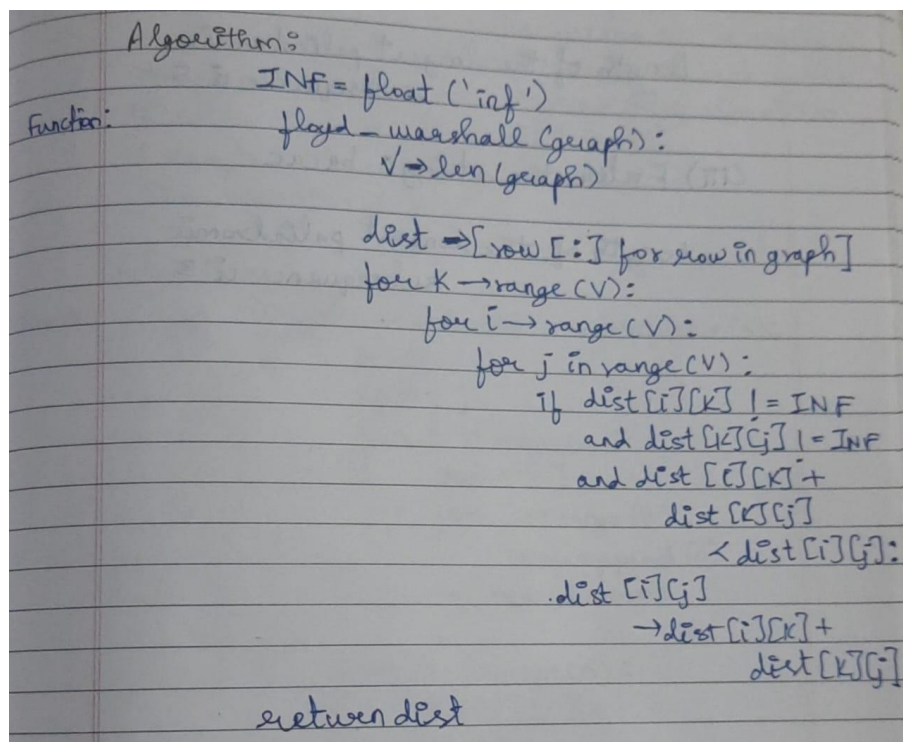 Algorithm:
INF = float ('inf')
Function:
floyd - warshall (graph):
V → len (graph)
dist → [row [:] for row in graph]
for K → range (V):
for i → range (V):
for j in range (V):
if dist [i][K] != INF
and dist [K][j] != INF
and dist [i][K] +
dist [K][j]
< dist [i][j]:
dist [i][j]
→ dist [i][K] +
dist [K][j]
return dist